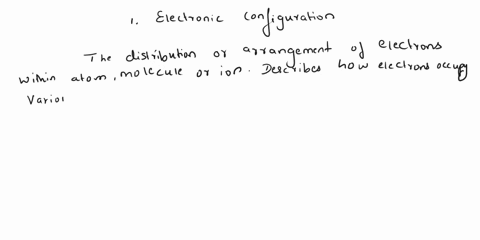 1. Electronic Configuration
The distribution or arrangement of electrons
within atom, molecule or ion. Describes how electrons occupy
Variou